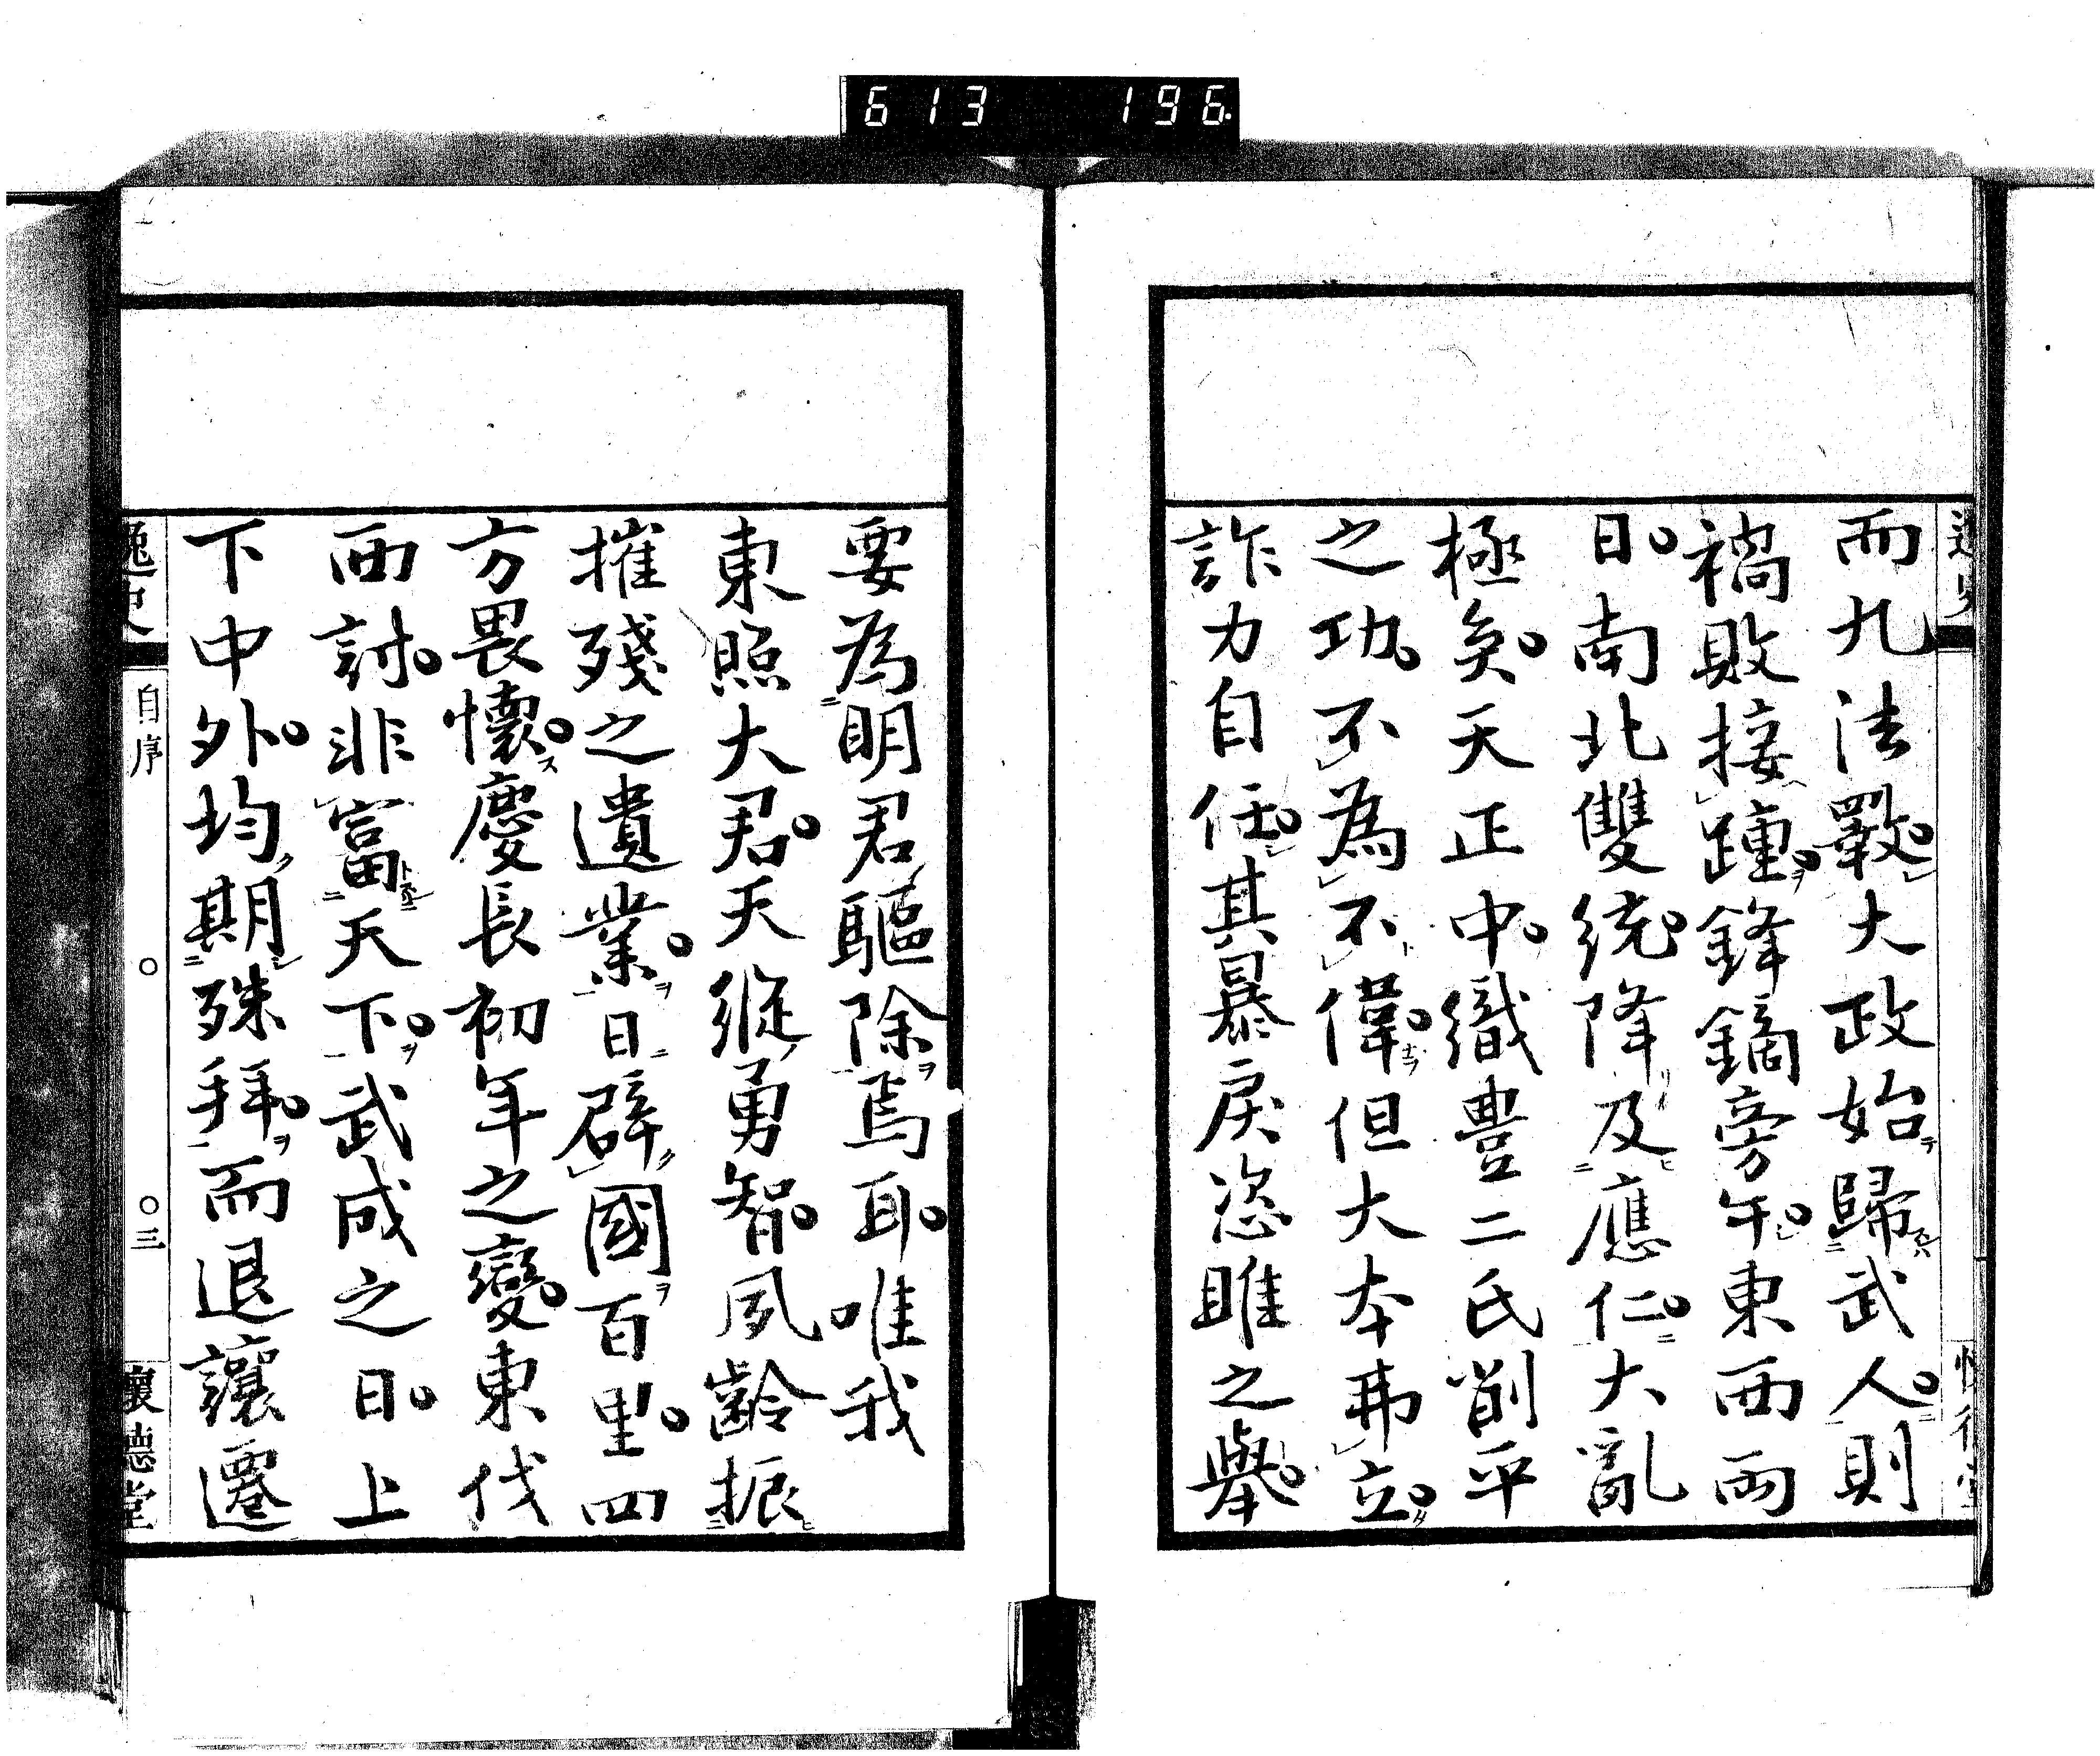 613 196
而九法斁大政始歸武人則
禍敗接踵鋒鏑旁午東西兩
日南北雙統降及應仁大亂
極矣天正中織豊二氏削平
之功不為不偉但大本弗立
詐力自任其暴戾恣雎之舉
要為明君驅除焉耳唯我
東照大君天縱勇智夙齡振
摧殘之遺業日辟國百里四
方畏懷慶長初年之變東伐
西討非富天下武成之日上
下中外均期殊拜而退讓遷
逸史 自序 〇 〇三 懷德堂